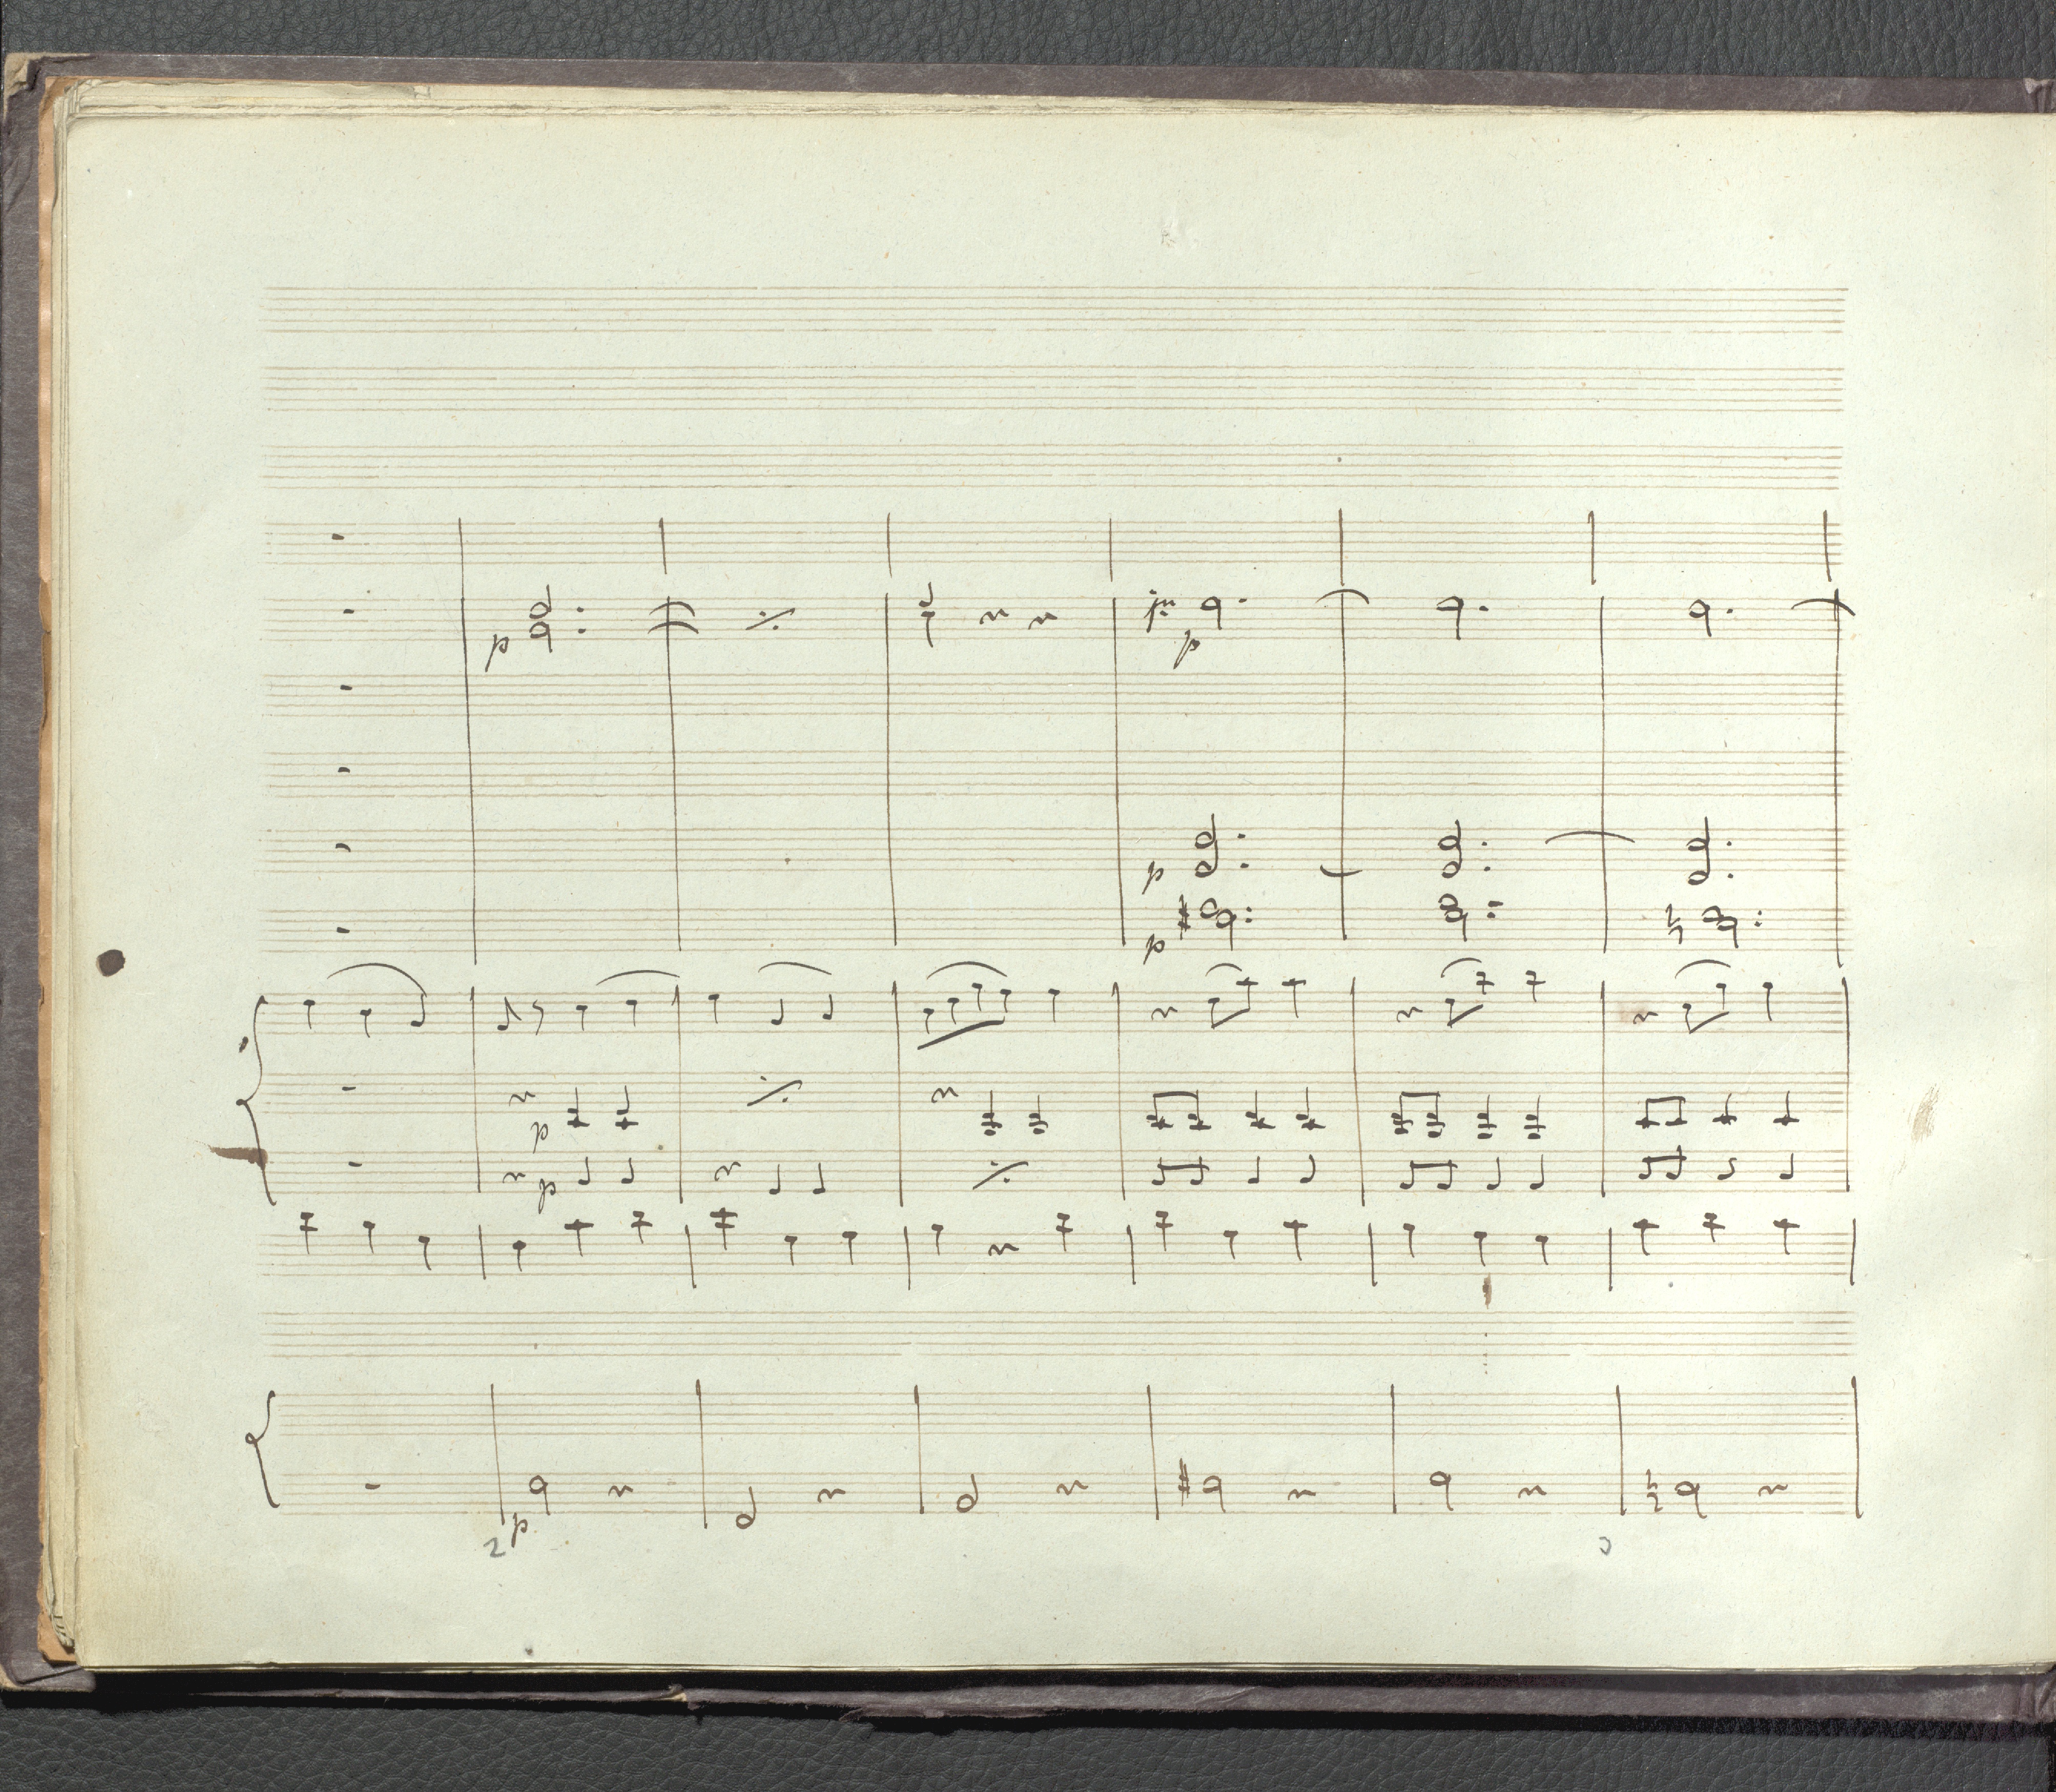 p
p
p
p
p
p
p
2